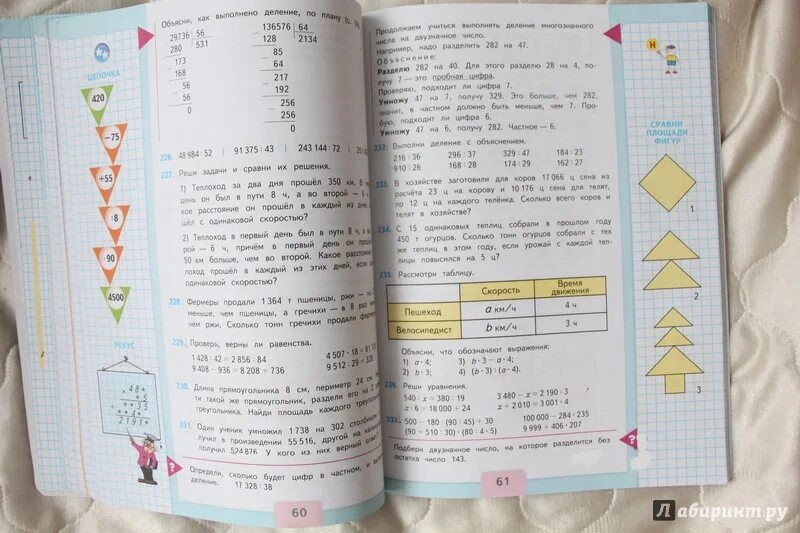 Объясни, как выполнено деление, по плану (с.
29736 56
280 531
173
168
56
56
0
136576 64
128 2134
85
64
217
192
256
256
0
ЦЕПОЧКА
420
-75
+55
:8
·90
4500
РЕБУС
48*
*5
**35
**4*
2191*
226. 48 984 : 52 91 375 : 43 243 144 : 72
227. Реши задачи и сравни их решения,
1) Теплоход за два дня прошёл 350 км. В
день он был в пути 8 ч, а во второй — 6
кое расстояние он прошёл в каждый из
шёл с одинаковой скоростью?
2) Теплоход в первый день был в пути 8 ч, а
рой — 6 ч, причём в первый день он
50 км больше, чем во второй. Какое расстоян
лоход прошёл в каждый из этих дней, если
одинаковой скоростью?
228. Фермеры продали 1 364 т пшеницы, ржи — на
меньше, чем пшеницы, а гречихи — в 8 раз
чем ржи. Сколько тонн гречихи продали фермер
229. Проверь, верны ли равенства.
1 428 : 42 = 2 856 : 84 4 507 · 18 = 81
9 408 − 936 = 8 208 + 736 9 512 : 29 = 328
230. Длина прямоугольника 8 см, периметр 24 см.
ти такой же прямоугольник, раздели его на 2
треугольника. Найди площадь каждого треуголь
231. Один ученик умножил 1 738 на 302 столбиком
лучил в произведении 55 516, другой на
получил 524 876 У кого из них верный ответ
?
Определи, сколько будет цифр в частном, и
деление. 17 328 : 38
60
Продолжаем учиться выполнять деление многозначного
числа на двузначное число.
Например, надо разделить 282 на 47.
Объяснение:
Разделю 282 на 40. Для этого разделю 28 на 4, по-
лучу 7 — это пробная цифра.
Проверяю, подходит ли цифра 7.
Умножу 47 на 7, получу 329. Это больше, чем 282,
значит, в частном должно быть меньше, чем 7. Про-
бую, подходит ли цифра 6.
Умножу 47 на 6, получу 282. Частное — 6.
232. Выполни деление с объяснением.
216 : 36 296 : 37 329 : 47 184 : 23
910 : 26 168 : 28 174 : 29 162 : 27
233. В хозяйстве заготовили для коров 17 066 ц сена из
расчёта 23 ц на корову и 10 176 ц сена для телят,
по 12 ц на каждого телёнка. Сколько всего коров и
телят в хозяйстве?
234. С 15 одинаковых теплиц собрали в прошлом году
450 т огурцов. Сколько тонн огурцов собрали с тех
же теплиц в этом году, если урожай с каждой теп-
лицы повысился на 5 ц?
235. Рассмотри таблицу.
Скорость Время движения
Пешеход a км/ч 4 ч
Велосипедист b км/ч 3 ч
Объясни, что обозначают выражения:
1) a · 4; 3) b · 3 − a · 4;
2) b · 3; 4) (b · 3) : (a · 4).
236. Реши уравнения.
540 : x = 380 : 19 3 480 − x = 2 190 : 3
x · 6 = 18 000 : 24 x : 2 010 = 3 001 · 4
237. 500 − 180 : (90 : 45) + 30 100 000 − 284 · 235
(90 + 510 : 30) · (80 : 4 · 5) 9 999 + 406 · 207
Подбери двузначное число, на которое разделится без
остатка число 143.
?
61
Н
СРАВНИ
ПЛОЩАДИ
ФИГУР
1
2
3
Лабиринт.ру